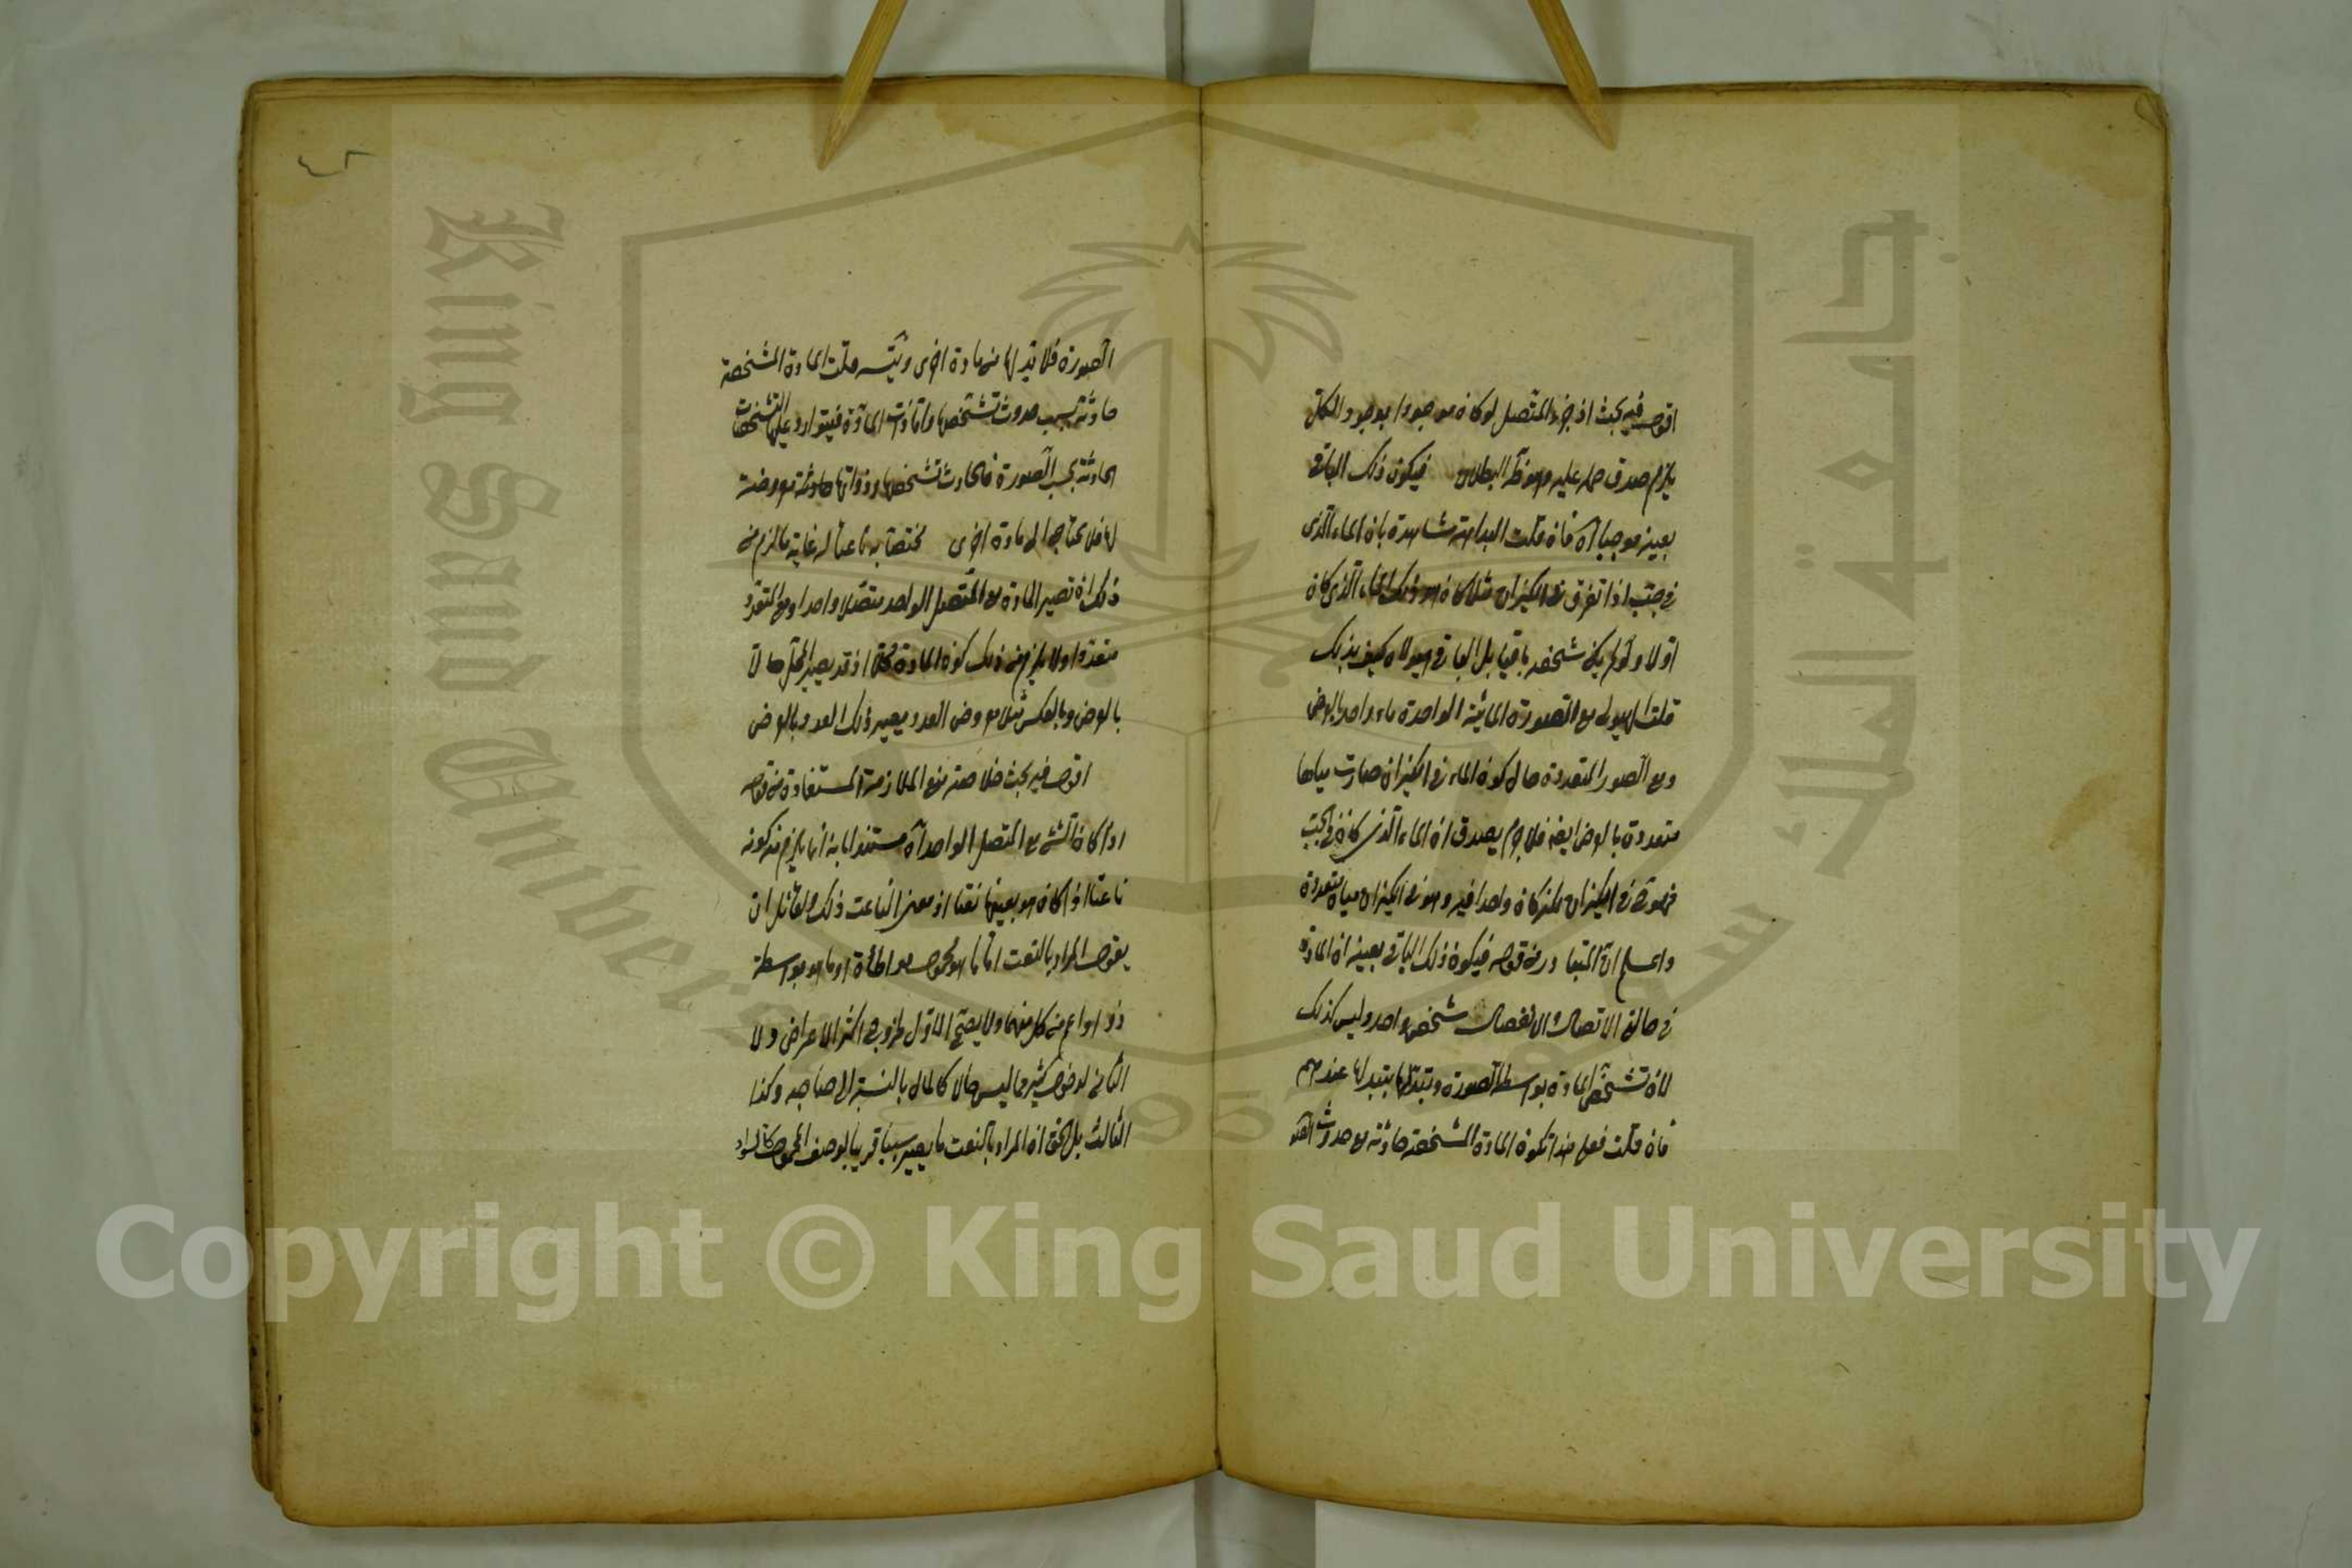 اقول فيه بحث اذ جزء المتصل لو كان موجودا بوجود الكل
يلزم صدق حمله عليه وهو ظ البطلان فيكون ذلك الباقي
بعينه موجبا اه فان قلت البداهة شاهدة بان الماء الذى
فى جب اذا تفرق فى الكيزان مثلا كان هو ذلك الماء الذى كان
اولا ولو لم يكن شخصه باقيا بل الباقى هيولاه كيف بذلك
قلت الهيولى مع الصورة المائية الواحدة ماء واحد بالعرض
ومع الصور المتعددة حال كون الماء فى الكيزان صارت مياها
متعددة بالعرض ايضا فلا جرم يصدق ان الماء الذى كان فى الجب
فى الكيزان كان واحدا فيه وهو فى الكيزان مياه متعددة
واعلم ان المتبادر من قوله فيكون ذلك الباقى بعينه ان المادة
فى حالة الاتصال والانفصال شخص واحد وليس كذلك
لان تشخص المادة بواسطة الصورة وتبدلها بتبدلها عندهم
فان قلت فعلى هذا تكون المادة المشخصة حادثة مع حدوث
الصورة فلا بد لها من مادة اخرى ويتسلسل قلت المادة المشخصة
حادثة بسبب حدوث تشخصها واما ذات المادة فيتوارد عليها التشخصات
الحادثة بحسب الصورة فالحادث تشخصها وذواتها حادثة معروضة
له فلا يحتاج الى مادة اخرى مختصا به ناعتا له غاية ما لزم من
ذلك ان تصير المادة مع المتصل الواحد متصلا واحدا ومع المتعدد
متعددا ولا يلزم من ذلك كون المادة محلا اذ قد يصير المحل حالا
بالعرض وبالعكس مثلا معروض العدد يصير ذلك العدد بالعرض
اقول فيه بحث خلاصته منع الملازمة المستفادة من قوله
اذا كان الشئ مع المتصل الواحد اه مستندا بانه انما يلزم منه كونه
ناعتا اذا كان هو بعينه نعتا اذ معنى الناعت ذلك ولقائل ان
يقول المراد بالنعت اما ما هو محمول مواطأة او ما هو بواسطة
ذو او اعم من كل منهما ولا يصح الاول لخروج اكثر الاعراض ولا
الثانى لدخول كثير مما ليس حالا كالمال بالنسبة الى صاحبه وكذا
الثالث بل الحق ان المراد بالنعت ما يصير سببا قريبا لوصف المحمول كالسواد
Copyright © King Saud University
King Saud University
1957